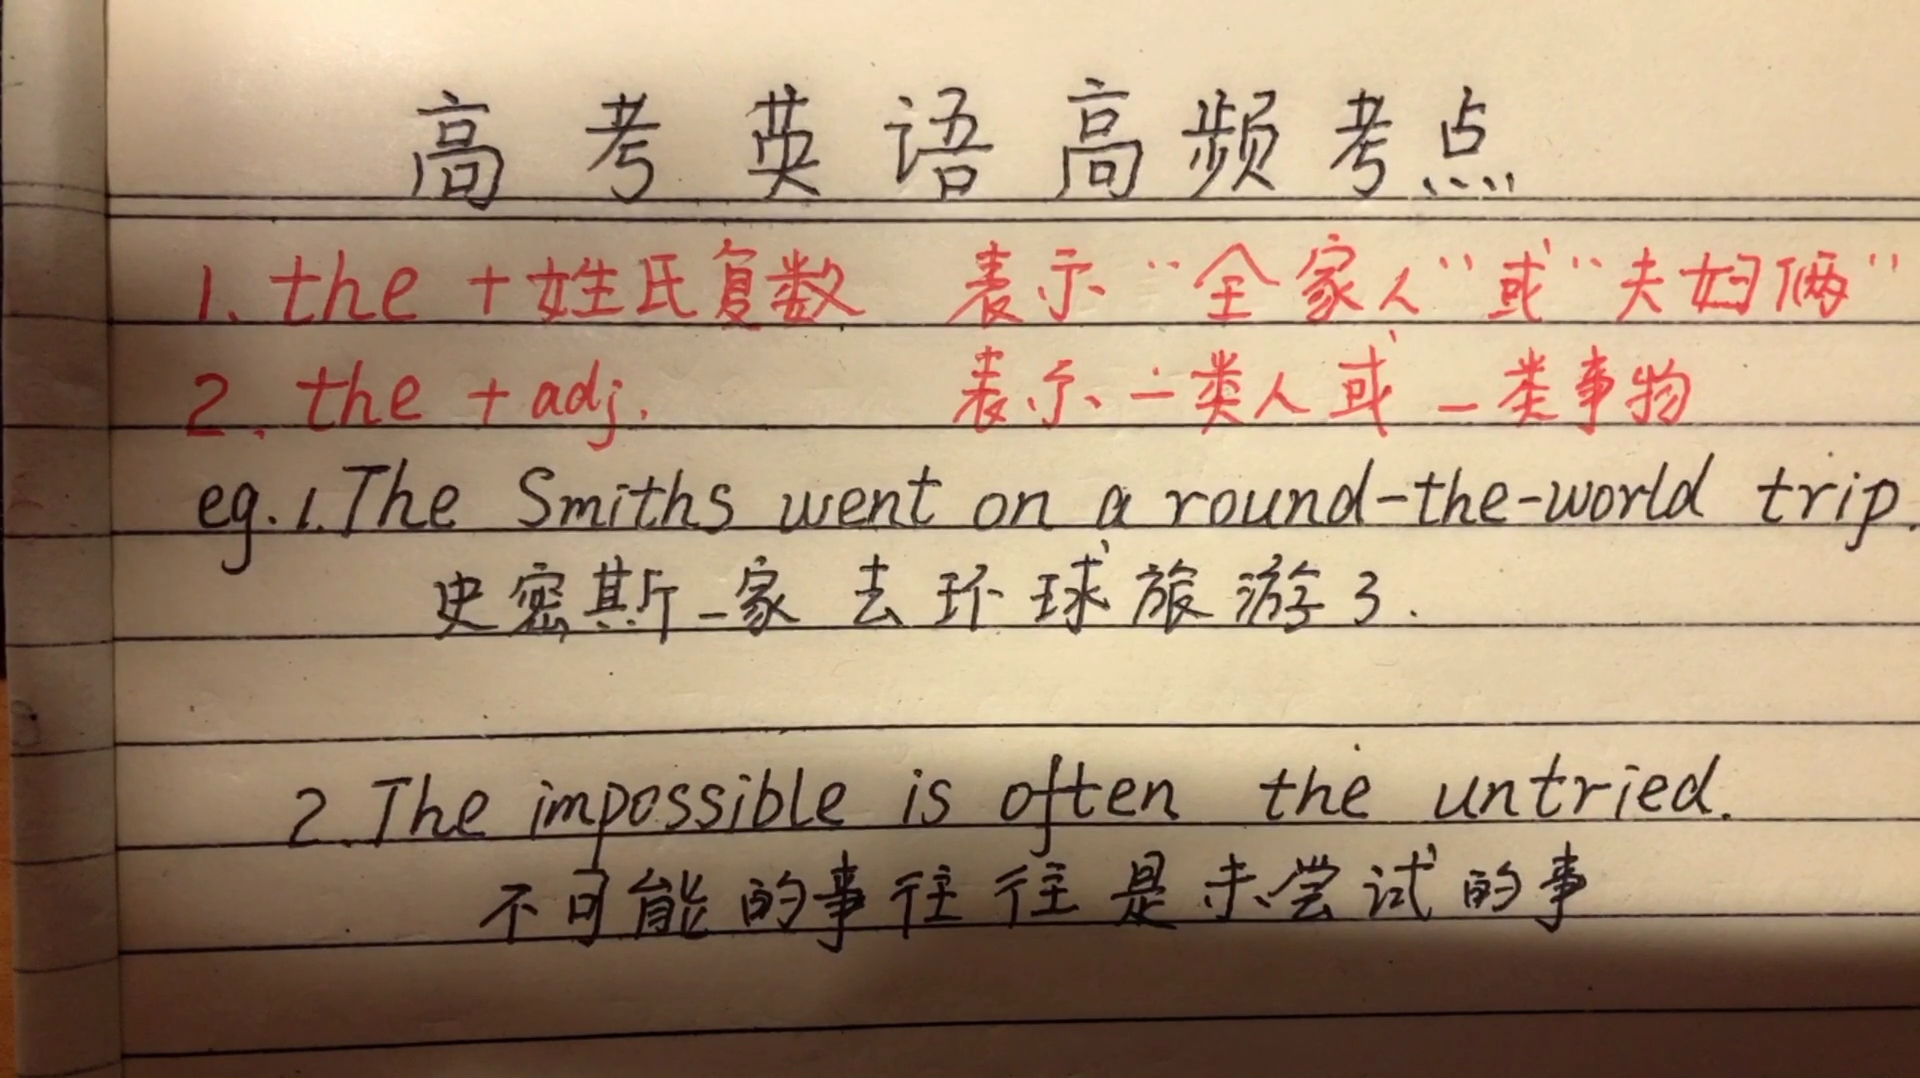 高考英语高频考点
1. the + 姓氏复数 表示“全家人”或“夫妇俩”
2. the + adj. 表示一类人或一类事物
eg. 1. The Smiths went on a round-the-world trip.
史密斯一家去环球旅游了.
2. The impossible is often the untried.
不可能的事往往是未尝试的事